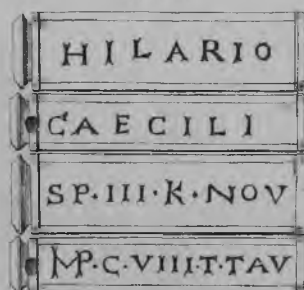 HILARIO
CAECILI
SP·III·K·NOV
MP·C·VIII·T·TAV